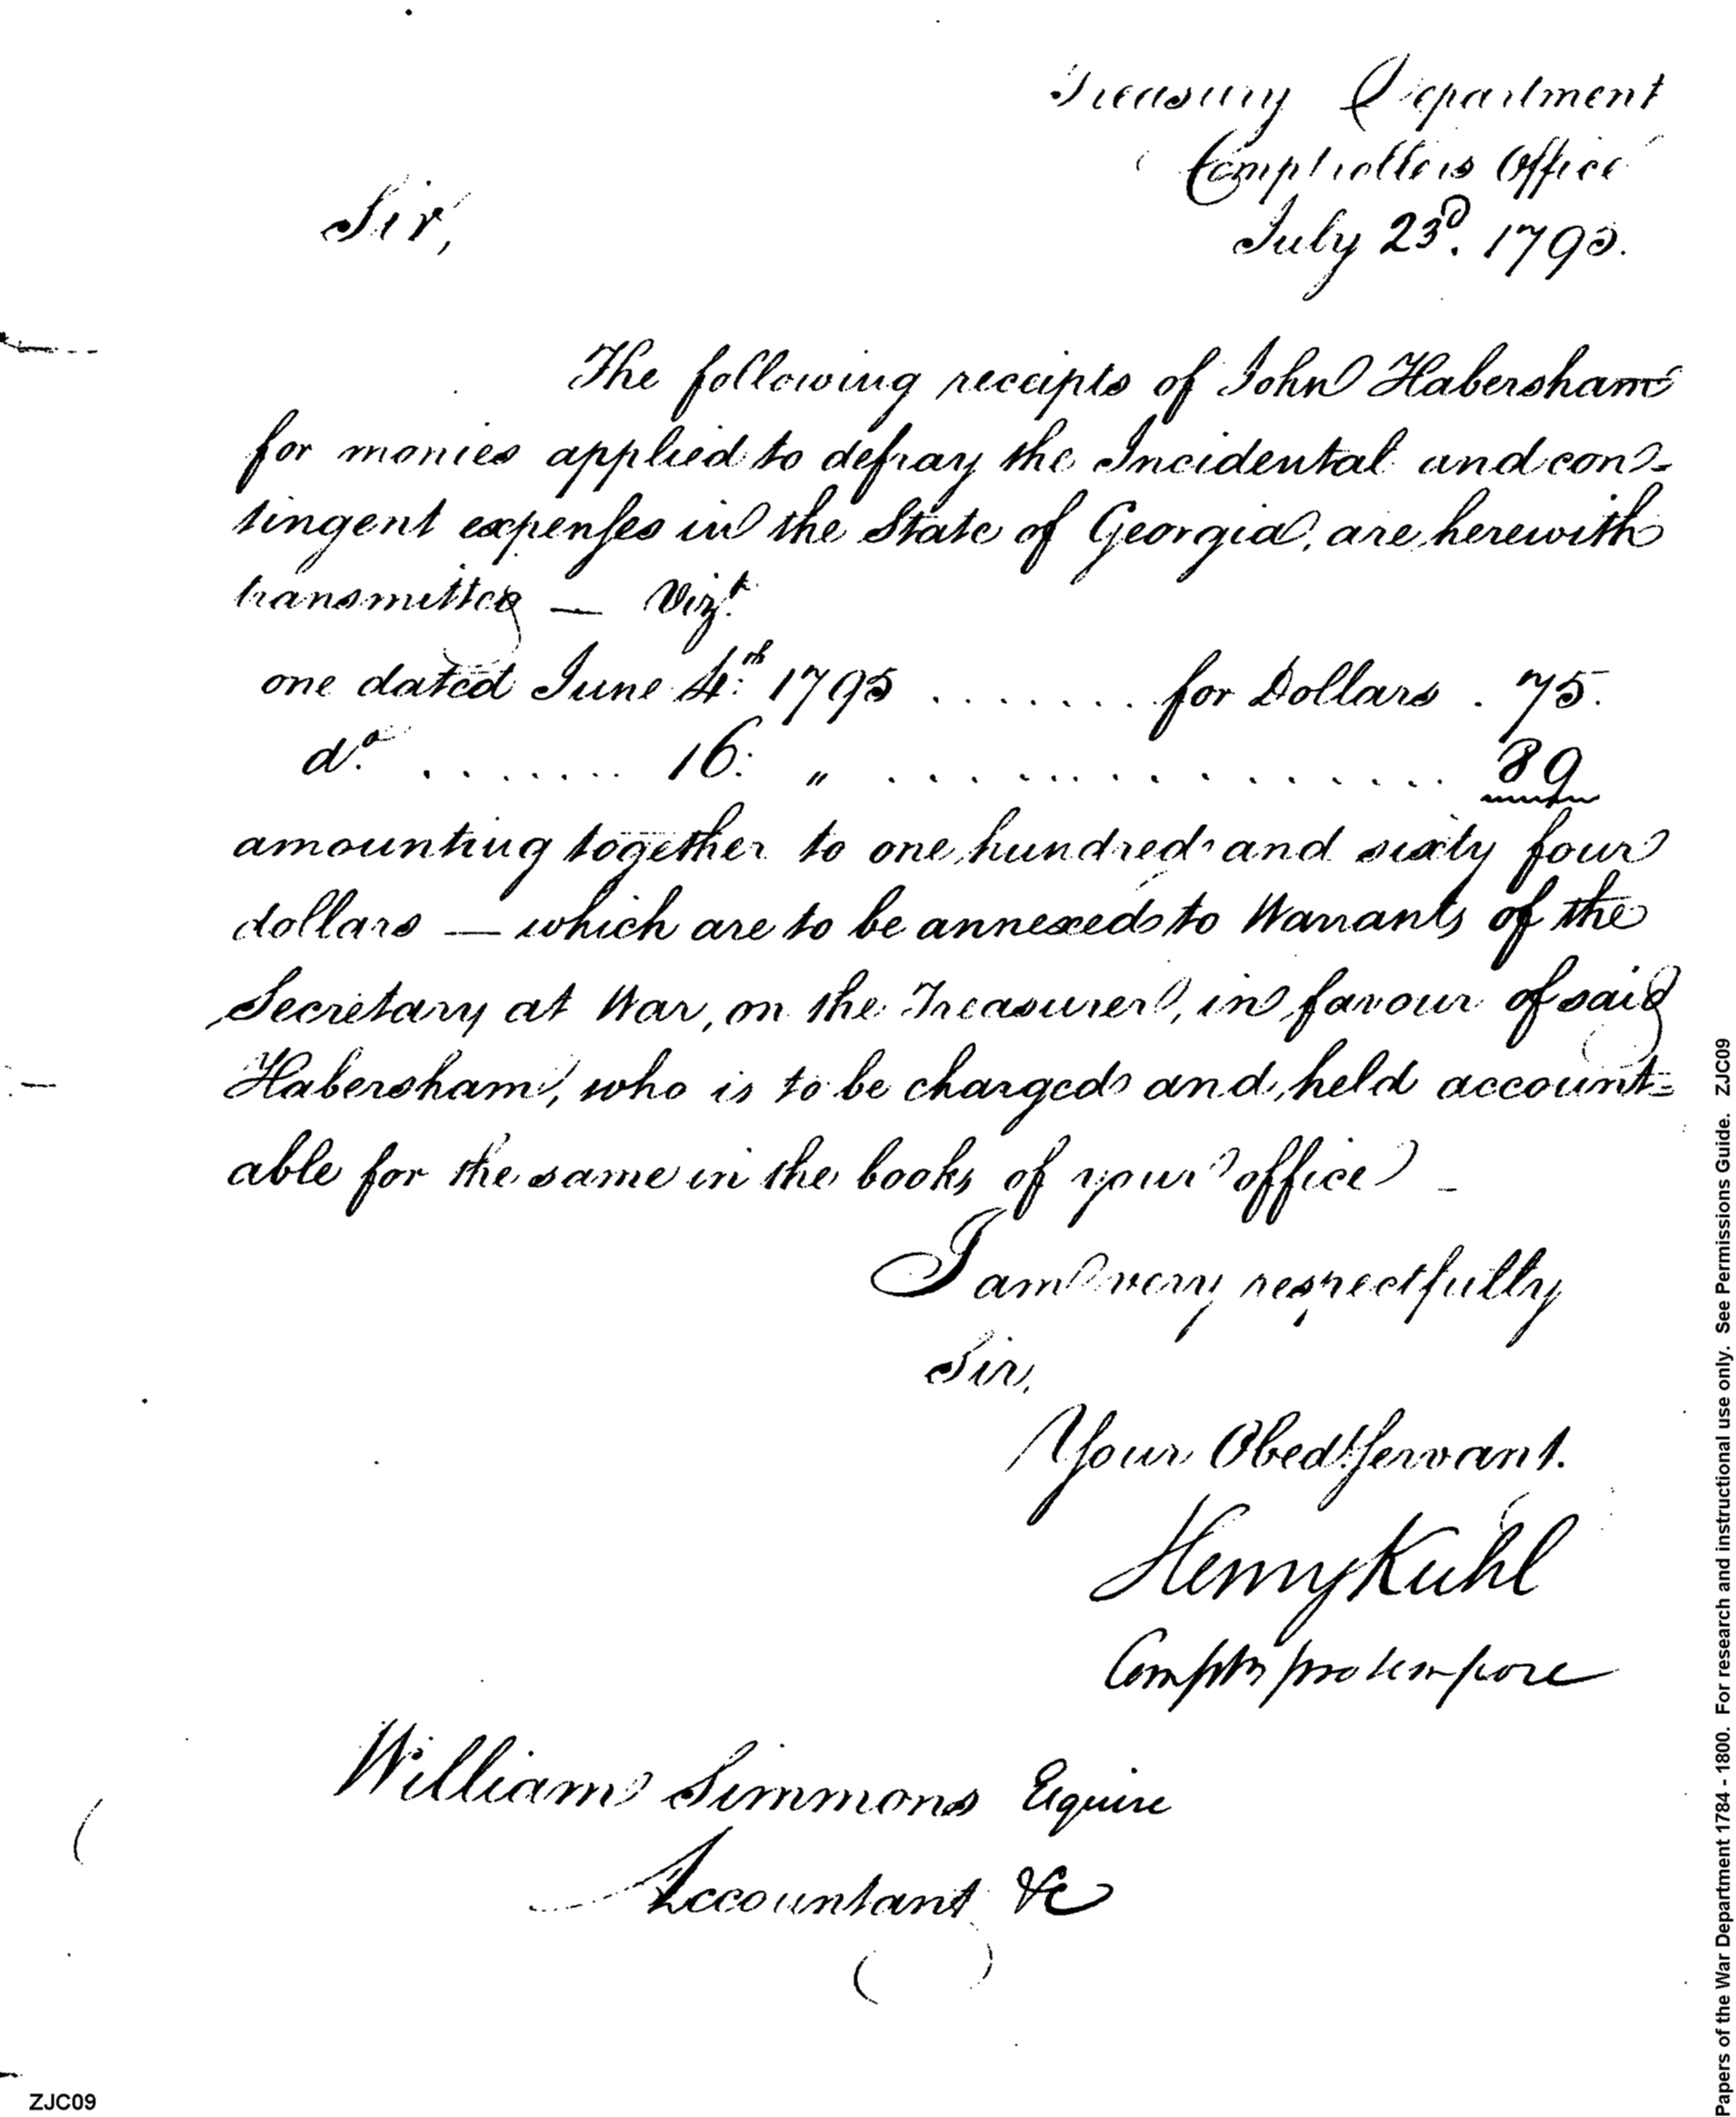 Treasury Department
Comptrollers Office
July 23d. 1795.
Sir,
The following receipts of John Habersham
for monies applied to defray the Incidental and con=
tingent expenses in the State of Georgia, are herewith
transmitted — Vizt.
one dated June 4th. 1795 ........ for Dollars . 75.
do. ........ 16. " .................... 89
amounting together to one hundred and sixty four
dollars — which are to be annexed to Warrants of the
Secretary at War, on the Treasurer, in favour of said
Habersham, who is to be charged and held account=
able for the same in the books of your office —
I am very respectfully
Sir,
Your Obedt. Servant.
Henry Kuhl
Comptr pro tempore
William Simmons Esquire
Accountant &c
ZJC09
Papers of the War Department 1784 - 1800. For research and instructional use only. See Permissions Guide. ZJC09